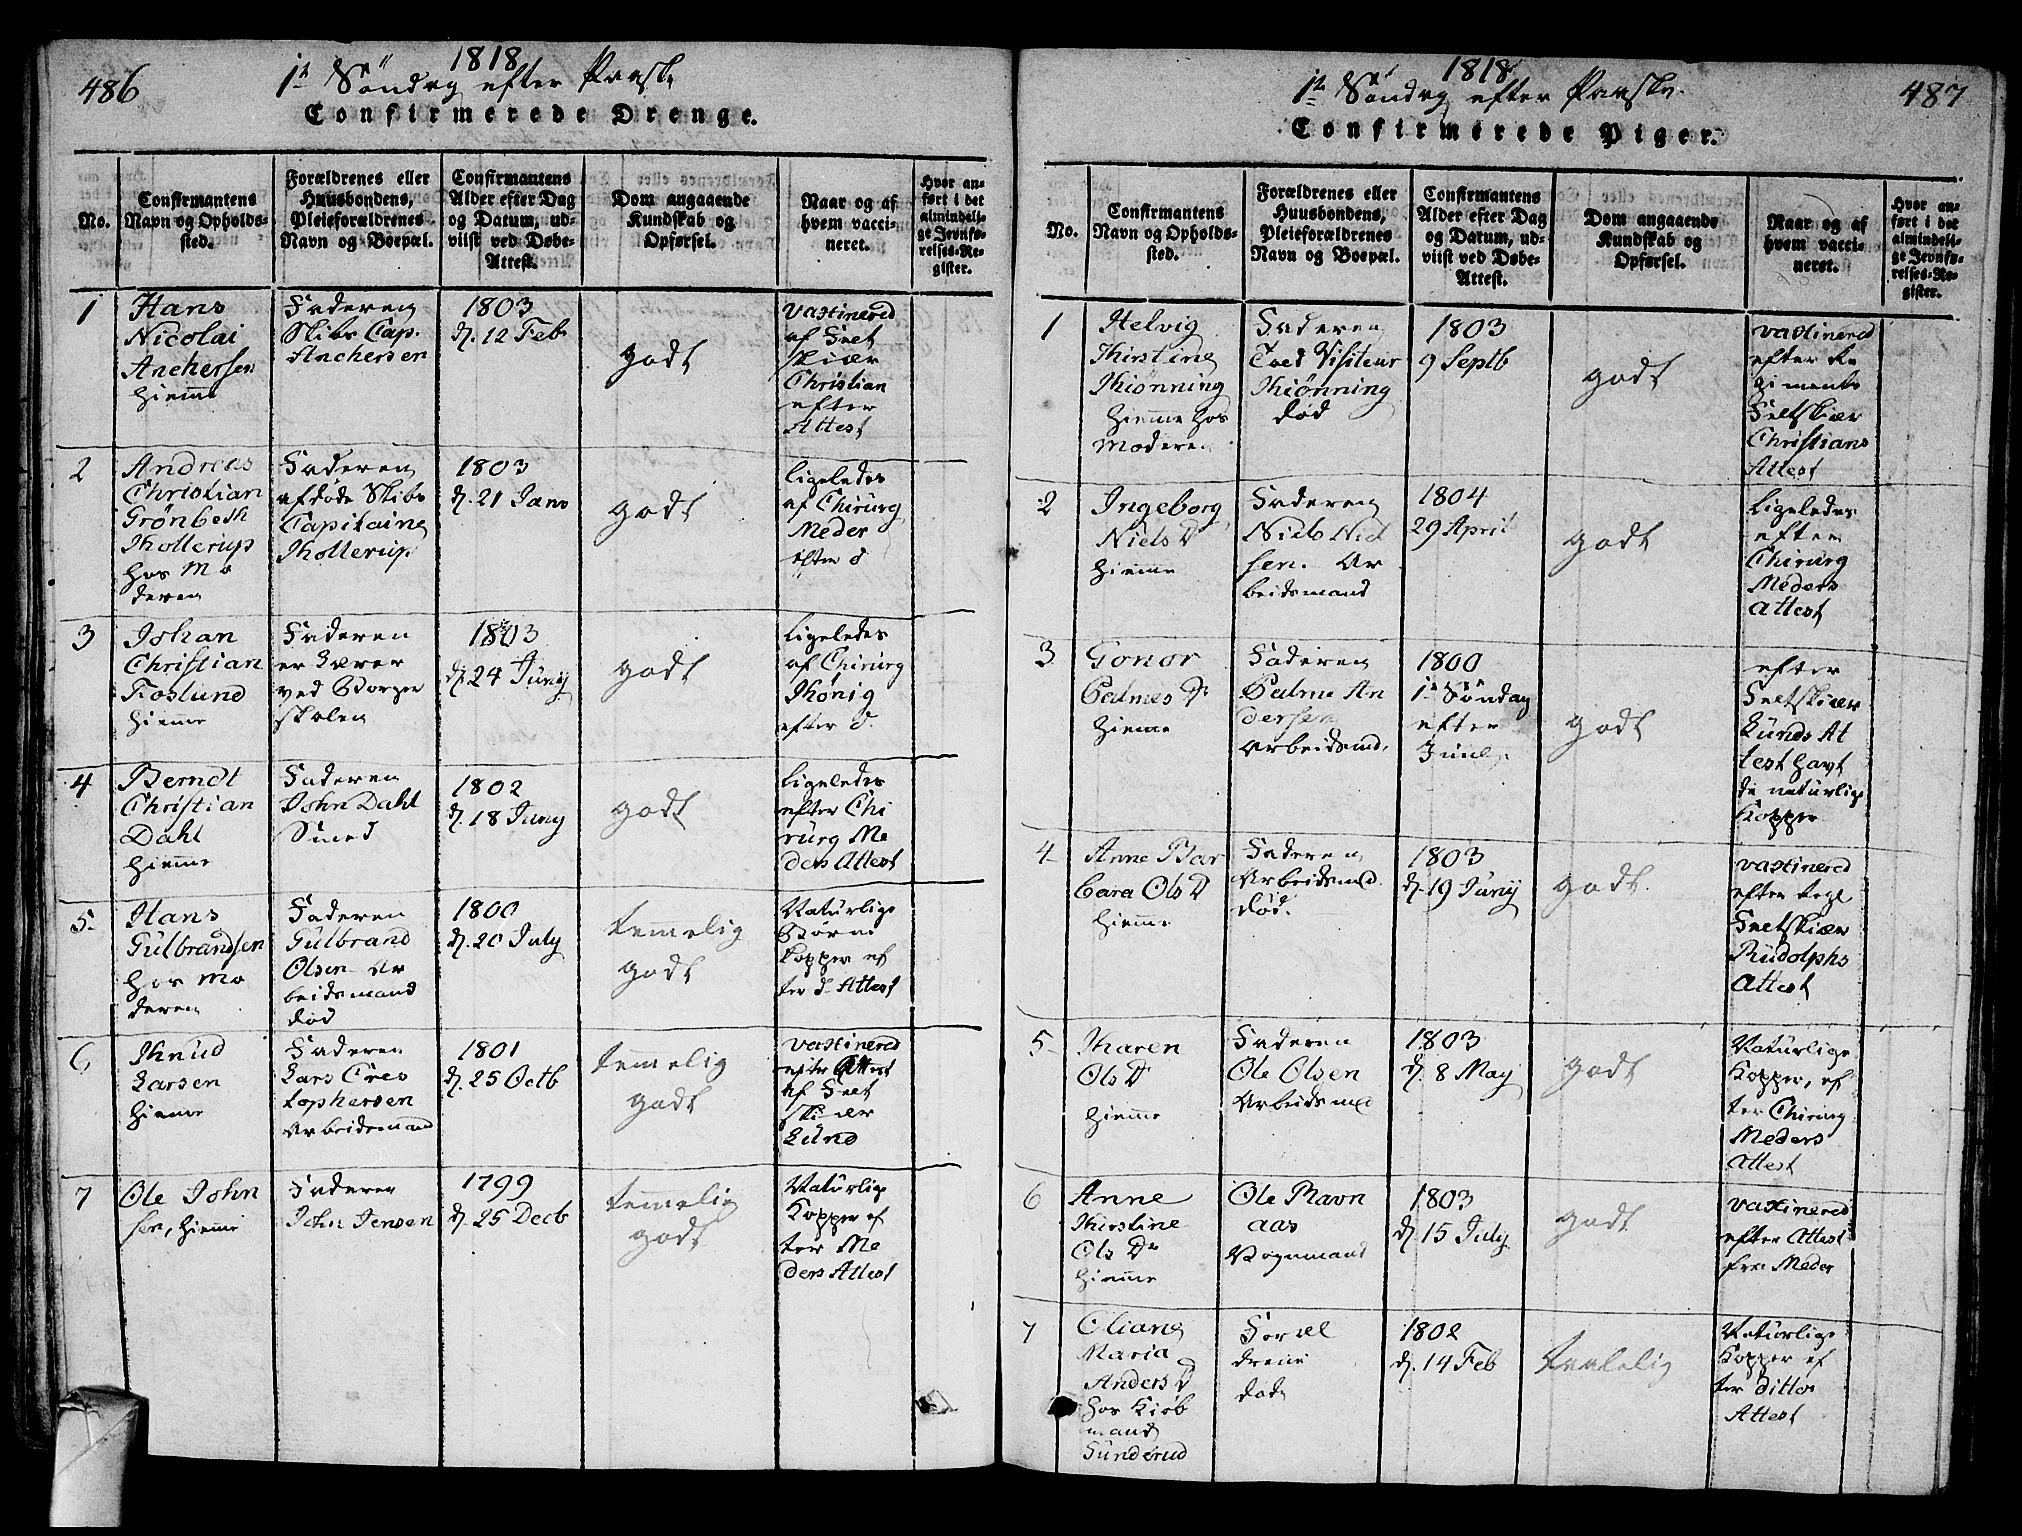 486
1818
1te Söndag efter Paaske
Confirmerede Drenge.
No.
Confirmantens
Navn og Opholds-
sted.
Forældrenes eller
Huusbondens,
Pleieforældrenes
Navn og Boepæl.
Confirmantens
Alder efter Dag
og Datum, ud-
viist ved Døbe-
Attest.
Dom angaaende
Kundskab og
Opførsel.
Naar og af
hvem vacci-
neret.
Hvor an-
ført i det
almindeli-
ge Jevnfø-
relses-Re-
gister.
1
Hans
Nicolai
Anchersen
hieme
Faderen
Skibs Cap.
Anchersen
1803
d. 12 Feb
godt
vaxinered
af Felt
skiær
Christian
efter
Attest
2
Andreas
Christian
Grönbech
Khollerup
hos Mo
deren
Faderen
afdöde Skibs
Capitaine
Khollerup
1803
d. 21 Jans
godt
ligeledes
af Chirürg
Meder
efter d
3
Johan
Christian
Foslund
hieme
Faderen
er Lærer
ved Borger
skolen
1803
d. 24 Juny
godt
ligeledes
af Chirurg
Khönig
efter d.
4
Berndt
Christian
Dahl
hieme
Faderen
John Dahl
Smed
1802
d. 18 Juny
godt
ligeledes
efter Chi
rürg Me
ders Attest
5
Hans
Gülbrandsen
hos Mo
deren
Faderen
Gülbrand
Olsen Ar
beidsmand
död
1800
d. 20 July
temelig
godt
Natürlige
Börne
Kopper ef
ter d Attest
6
Khnüd
Larsen
hieme
Faderen
Lars Cris
tophersen
Arbeidsmand
1801
d. 25 Octb
temmelig
godt
vaxinered
efter Attest
af Felt
skiær
Lünd
7
Ole John
sen, hieme
Faderen
John Jensen
1799
d. 25 Decb
temmelig
godt
Natürlige
Kopper ef
ter Me
ders Attest
487
1818
1te Söndag efter Paaske.
Confirmerede Piger.
No.
Confirmantens
Navn og Opholds-
sted.
Forældrenes eller
Huusbondens,
Pleieforældrenes
Navn og Boepæl.
Confirmantens
Alder efter Dag
og Datum, ud-
viist ved Døbe-
Attest.
Dom angaaende
Kundskab og
Opførsel.
Naar og af
hvem vacci-
neret.
Hvor an-
ført i det
almindeli-
ge Jevnfø-
relses-Re-
gister.
1
Helvig
Khirstine
Khiönning
hieme hos
Moderen
Faderen
Toed Visiteur
Khiönning
död
1803
9 Septb
godt
vaxinered
efter Re
giments
Feltskiær
Christians
Attest
2
Ingeborg
Niels D
hieme
Faderen
Niels Niel
sen. Ar
beidsmand
1804
29 April
godt
Ligeledes
efter
Chirurg
Meders
Attest
3
Gonor
Palmes Dr
hieme
Faderen
Palme An
dersen
Arbeidsmd.
1800
1te Söndag
efter
Juul.
godt
efter
Feltskiær
Lünds At
test havt
de natürlige
Kopper
4
Anne Bar
bara Ols D
hieme
Faderen
Arbeidsmd.
död.
1803
d. 19 Jüny
godt.
vaxinered
efter
Feltskiær
Rüdolphs
Attest
5
Kharen
Ols D
hieme
Faderen
Ole Olsen
Arbeidsmd
1803
d. 8 May
godt
Natürlige
Kopper, ef
ter Chirurg
Meders
Attest
6
Anne
Khirstine
Ols Dr
hieme
Ole Ravn
aas
Vognmand
1803
d. 15 July
godt
vaxinered
efter Attest
fra Meder
7
Oliane
Maria
Anders D
hos Kiöb
mand
Sünderud
Foræl
drene
döde
1802
d. 14 Feb
taalelig
Natürlige
Kopper ef
ter ditto
Attest